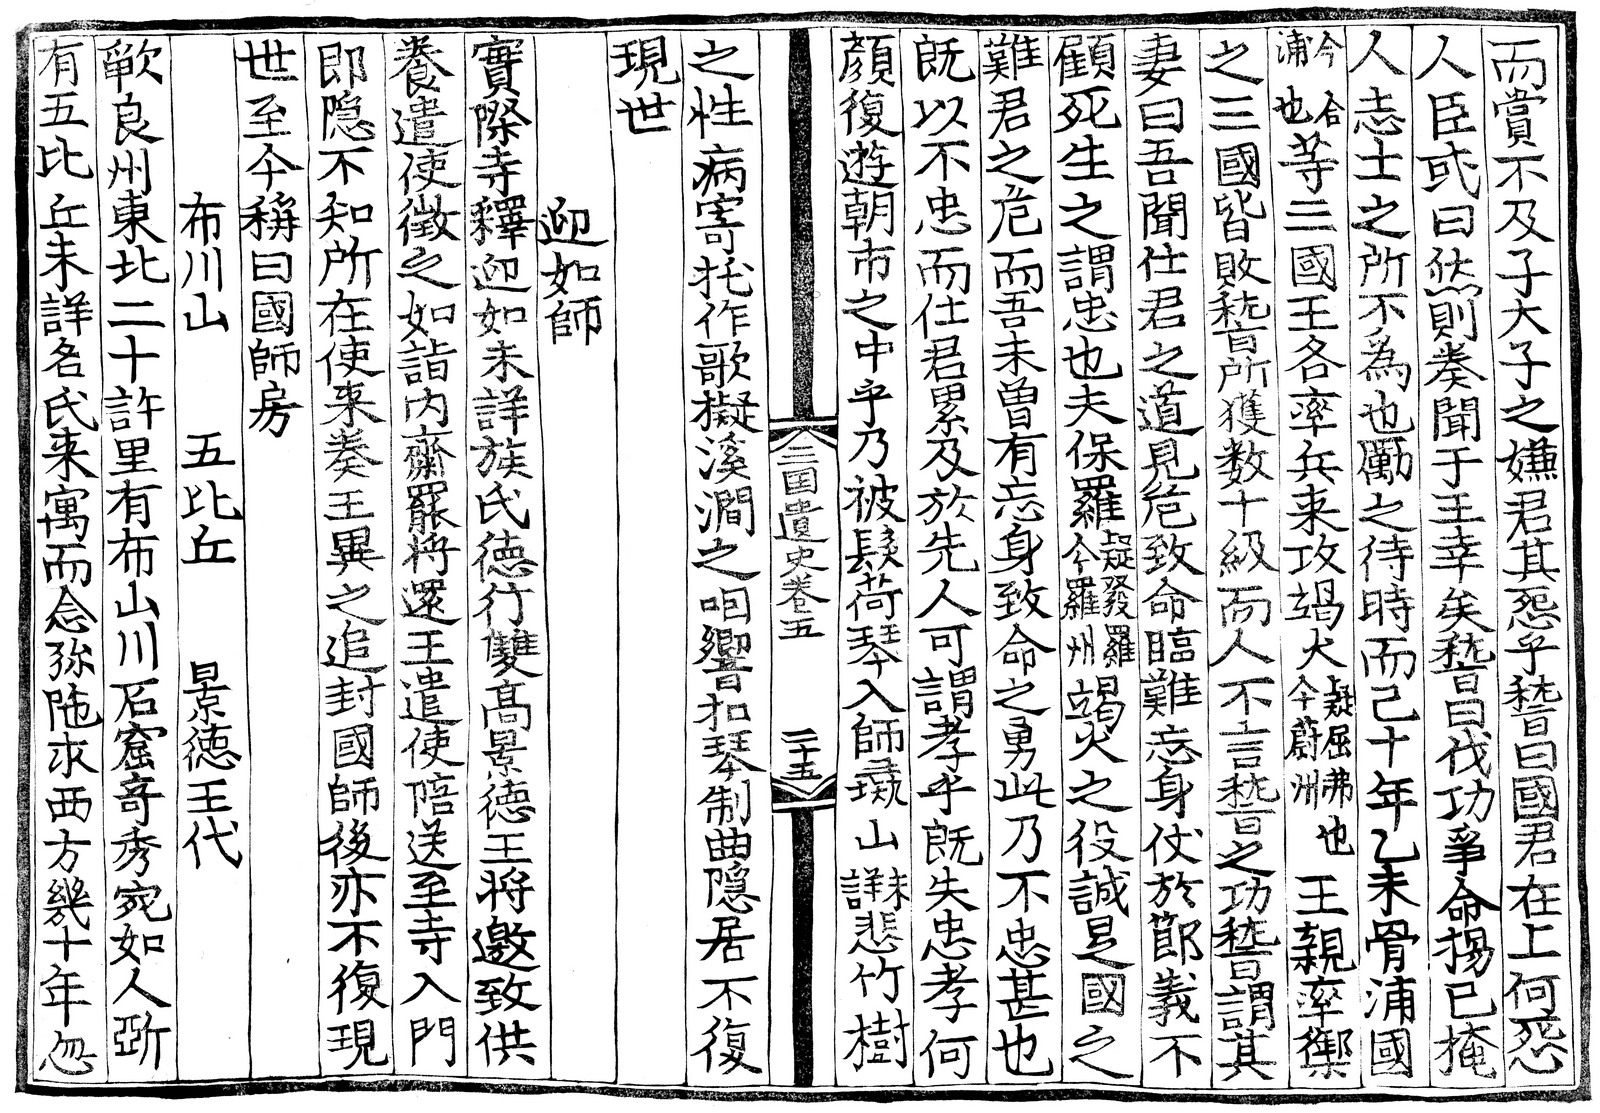 而賞不及子大子之嫌君其怨乎嵆曰國君在上何怨
人臣或曰然則奏聞于王幸矣嵆曰伐功爭命揚己掩
人志士之所不爲也勵之待時而已十年乙未骨浦國
今合浦也等三國王各率兵来攻竭火疑屈弗今蔚州也王親率禦
之三國皆敗嵆所獲数十級而人不言嵆之功嵆謂其
妻曰吾聞仕君之道見危致命臨難忘身仗於節義不
顧死生之謂忠也夫保羅疑發羅今羅州竭火之役誠是國之
難君之危而吾未曽有忘身致命之勇此乃不忠甚也
既以不忠而仕君累及於先人可謂孝乎既失忠孝何
顔復遊朝市之中乎乃被髮荷琴入師彘山未詳悲竹樹
三国遺史卷五 二十五
之性病寄托作歌擬溪澗之咽響扣琴制曲隐居不復
現世
迎如師
實際寺釋迎如未詳族氏德行雙髙景德王将邀致供
養遣使徵之如詣内齋罷将還王遣使陪送至寺入門
即隐不知所在使来奏王異之追封國師後亦不復現
世至今稱曰國師房
布川山 五比丘 景德王代
歃良州東北二十許里有布山川石窟竒秀宛如人斲
有五比丘未詳名氏来寓而念弥陁求西方幾十年忽